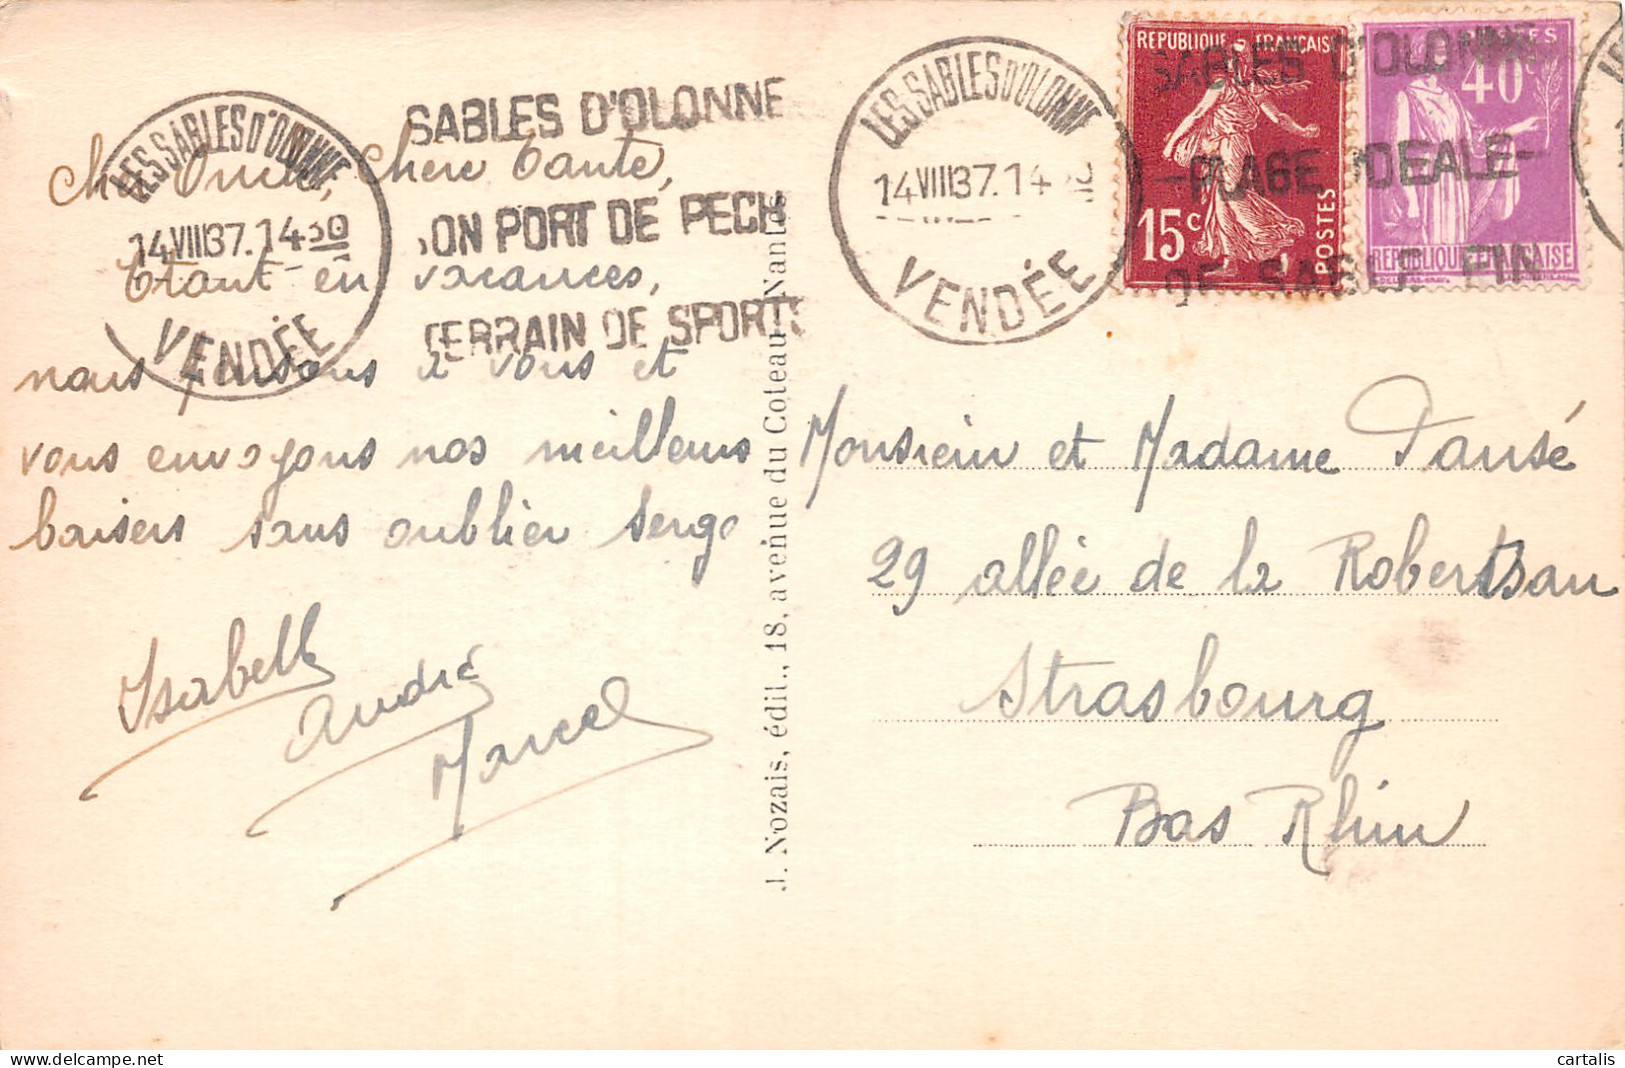 LES SABLES D'OLONNE
14 VIII 37. 14 30
VENDÉE
SABLES D'OLONNE
SON PORT DE PECH
TERRAIN DE SPORTS
LES SABLES D'OLONNE
14 VIII 37. 14
VENDÉE
SABLES D'OLONNE
-PLAGE IDEALE-
DE SABLE FIN
REPUBLIQUE FRANÇAISE
15c
POSTES
POSTES
40
REPUBLIQUE FRANÇAISE
Cher Oncle, Chère Tante,
Étant en vacances,
nous pensons à vous et
vous envoyons nos meilleurs
baisers sans oublier Serge
Isabelle
André
Marcel
J. Nozais, édit., 18, avenue du Coteau, Nantes
Monsieur et Madame Dansé
29 allée de la Robertsau
Strasbourg
Bas Rhin
cartalis